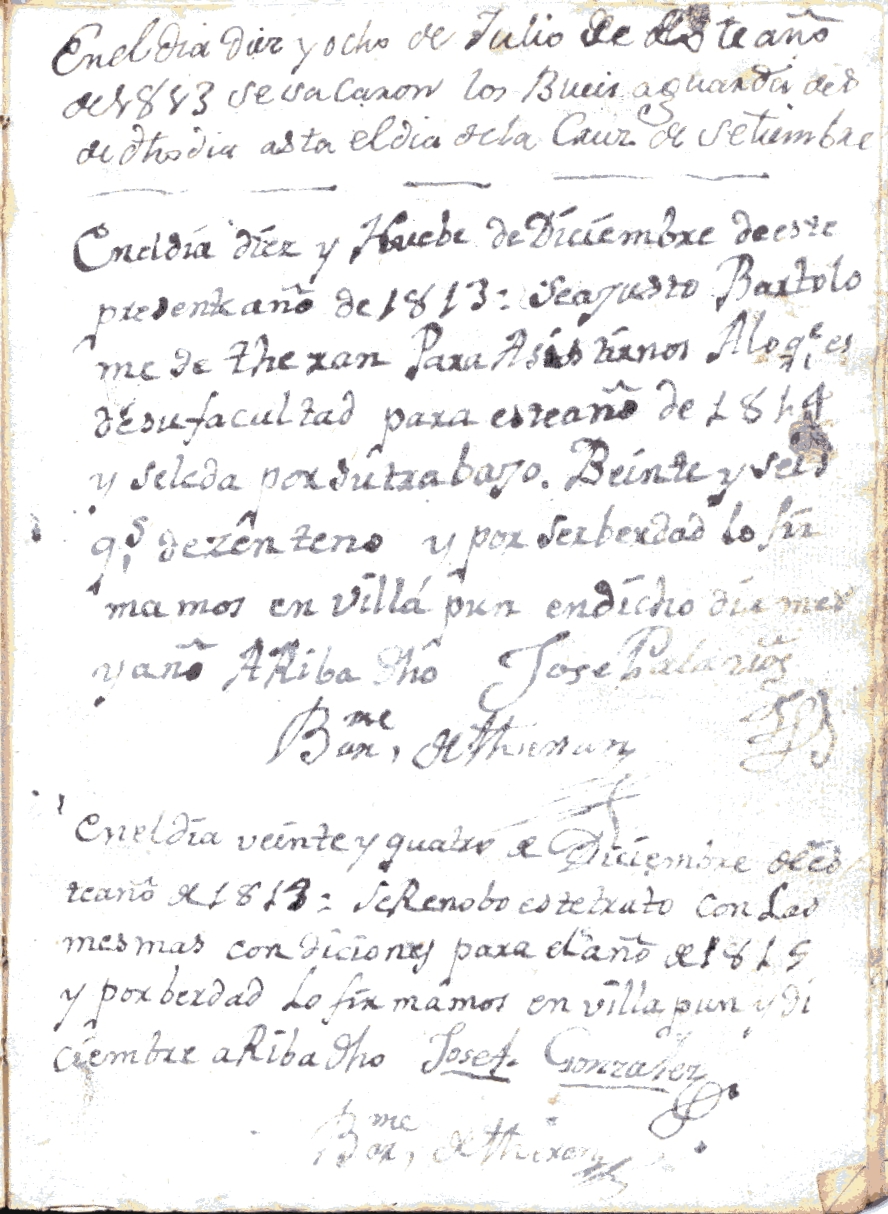 En el dia diez y ocho de Julio de este año
de 1813 se sacaron los Bueis a guardar desd
de dho dia asta el dia de la Cruz de setiembre
En el día díez y Nuebe de Díciembre de este
presente año de 1813: se ajusto Bartolo
me de theran Para Asistirnos A lo q.e es
de su facultad para este año de 1814
y se le da por su trabajo. Beinte y seis
q.s de zenteno y por ser berdad lo fir
mamos en villa pun en dicho dia mes
y año ARiba dho Jose Palazios
Bar.me de Theran
En el día veinte y quatro de Diciembre de es
te año de 1813: se Renobo este trato con Las
mesmas condiciones para el año de 1815
y por berdad Lo firmamos en villa pun y di
ciembre aRiba dho Josef. Gonzalez
Bar.me de theran